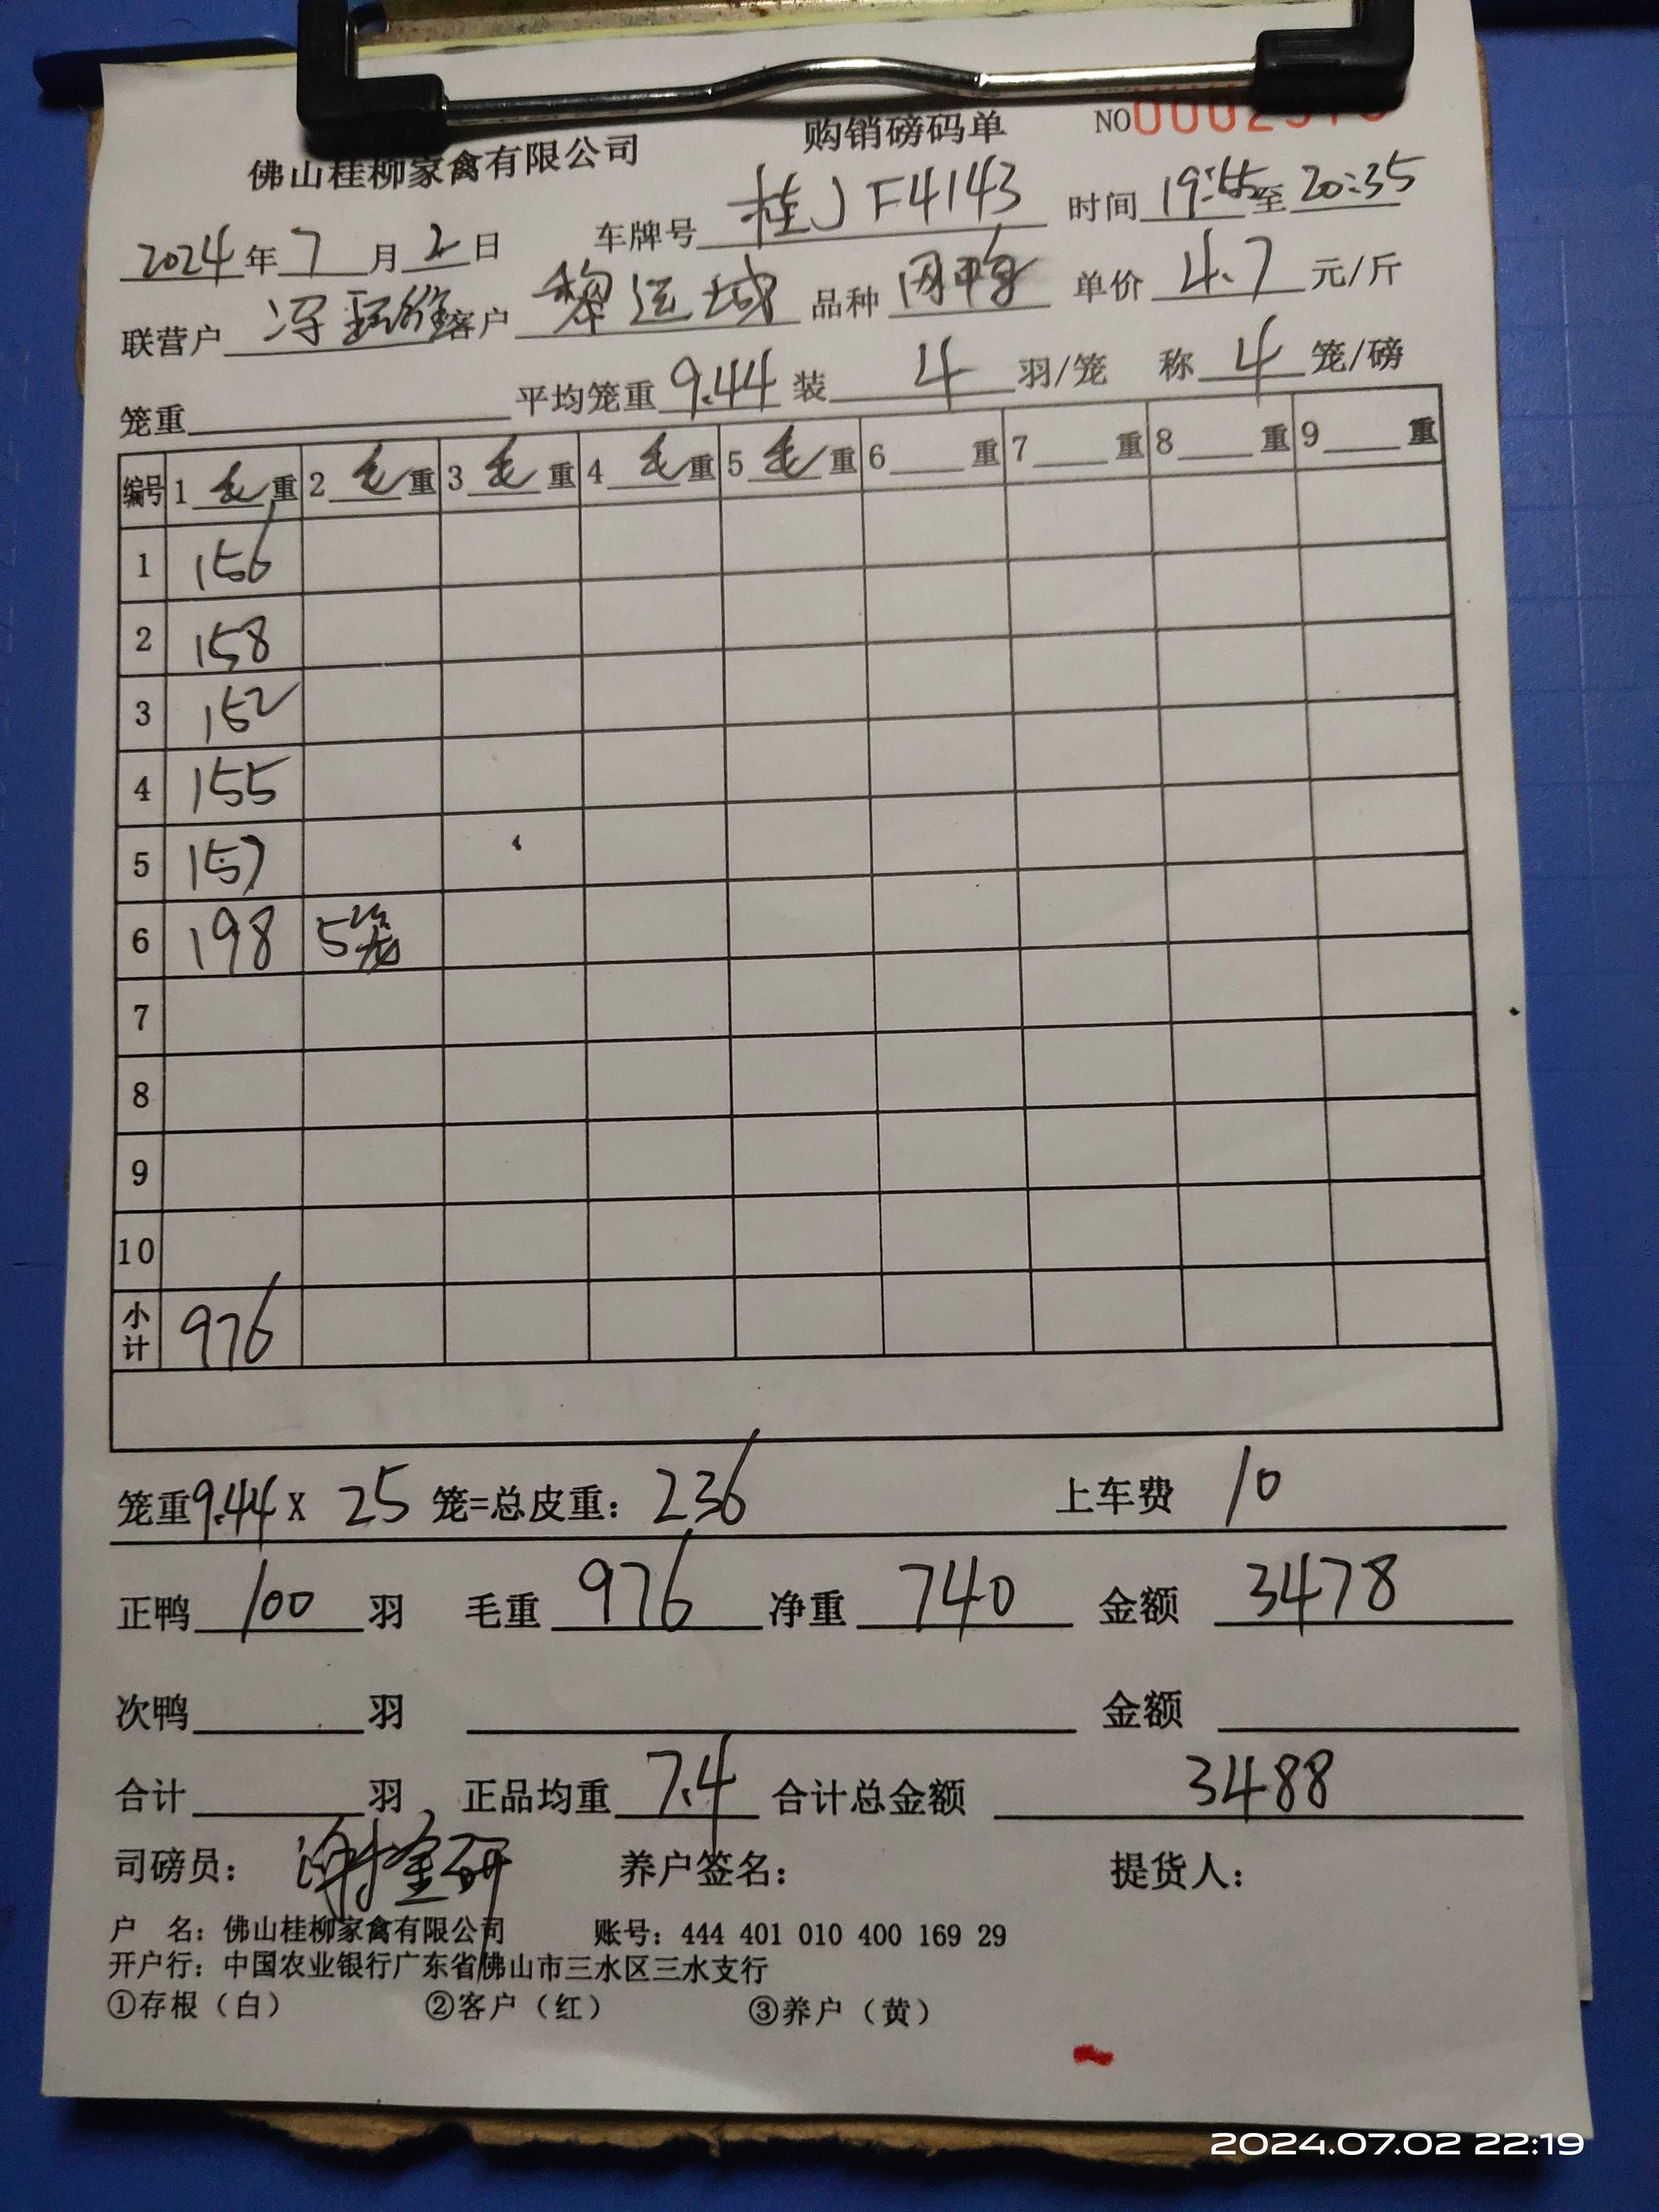 购销磅码单
佛山桂柳家禽有限公司 NO
2024年7月2日 车牌号 桂J F4143 时间 至20:35
联营户 冯 客户 黎运城 品种 单价 4.7 元/斤
笼重 平均笼重 9.44 装 4 羽/笼 称 4 笼/磅
编号 1 毛 重 2 毛 重 3 毛 重 4 毛 重 5 毛 重 6 重 7 重 8 重 9 重
1 156
2 158
3 152
4 155
5 157
6 198 5笼
7
8
9
10
小计 976
笼重9.44 X 25 笼=总皮重: 236 上车费 10
正鸭 100 羽 毛重 976 净重 740 金额 3478
次鸭 羽 金额
合计 羽 正品均重 7.4 合计总金额 3488
司磅员: 养户签名: 提货人:
户 名: 佛山桂柳家禽有限公司 账号: 444 401 010 400 169 29
开户行: 中国农业银行广东省佛山市三水区三水支行
①存根(白) ②客户(红) ③养户(黄)
2024.07.02 22:19